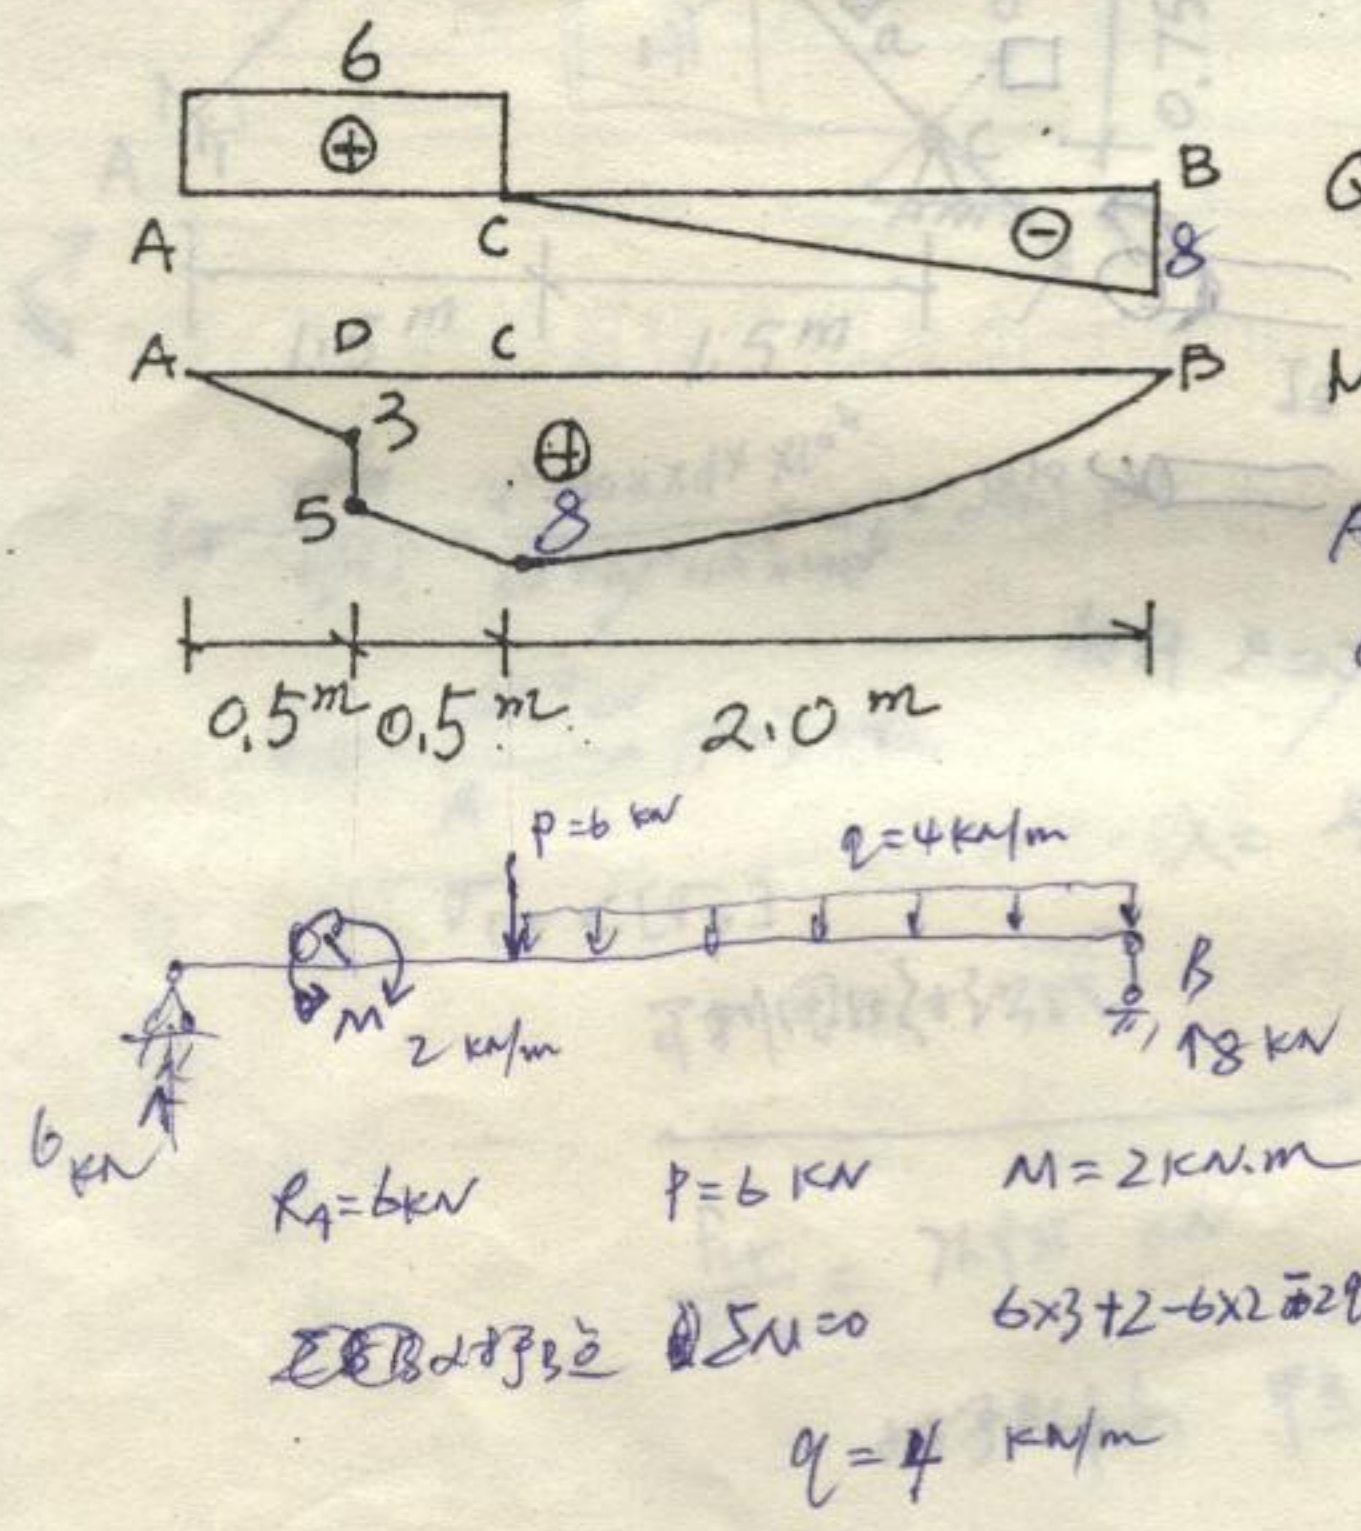 6
⊕
B
Q
A
C
⊖
8
A
D
C
B
3
⊕
5
8
0.5m
0.5m
2.0m
P=6 KN
q=4KN/m
M
2 KN/m
B
↑8 KN
6 KN
R_A=6KN
P=6 KN
M=2KN.m
ΣM=0
6×3+2-6×2-2q
q=4 KN/m